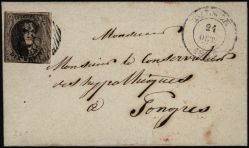 Monsieur
Monsieur le Conservateur
des hypothèques
à Tongres
24
OCT